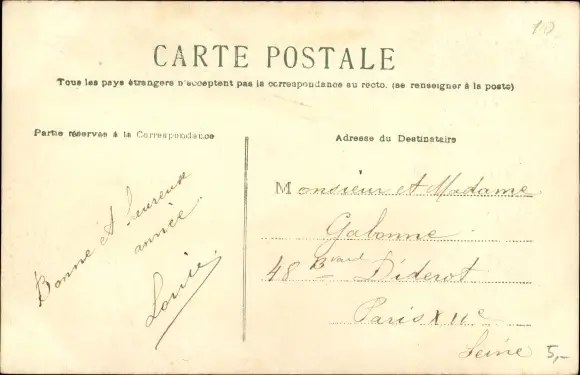 10
CARTE POSTALE
Tous les pays étrangers n'acceptent pas la correspondance au recto. (se renseigner à la poste)
Partie réservée à la Correspondance
Bonne et heureuse
année
Louise
Adresse du Destinataire
Monsieur et Madame
Gabonne
48 Bvard Diderot
Paris XIIe
Seine
5,-